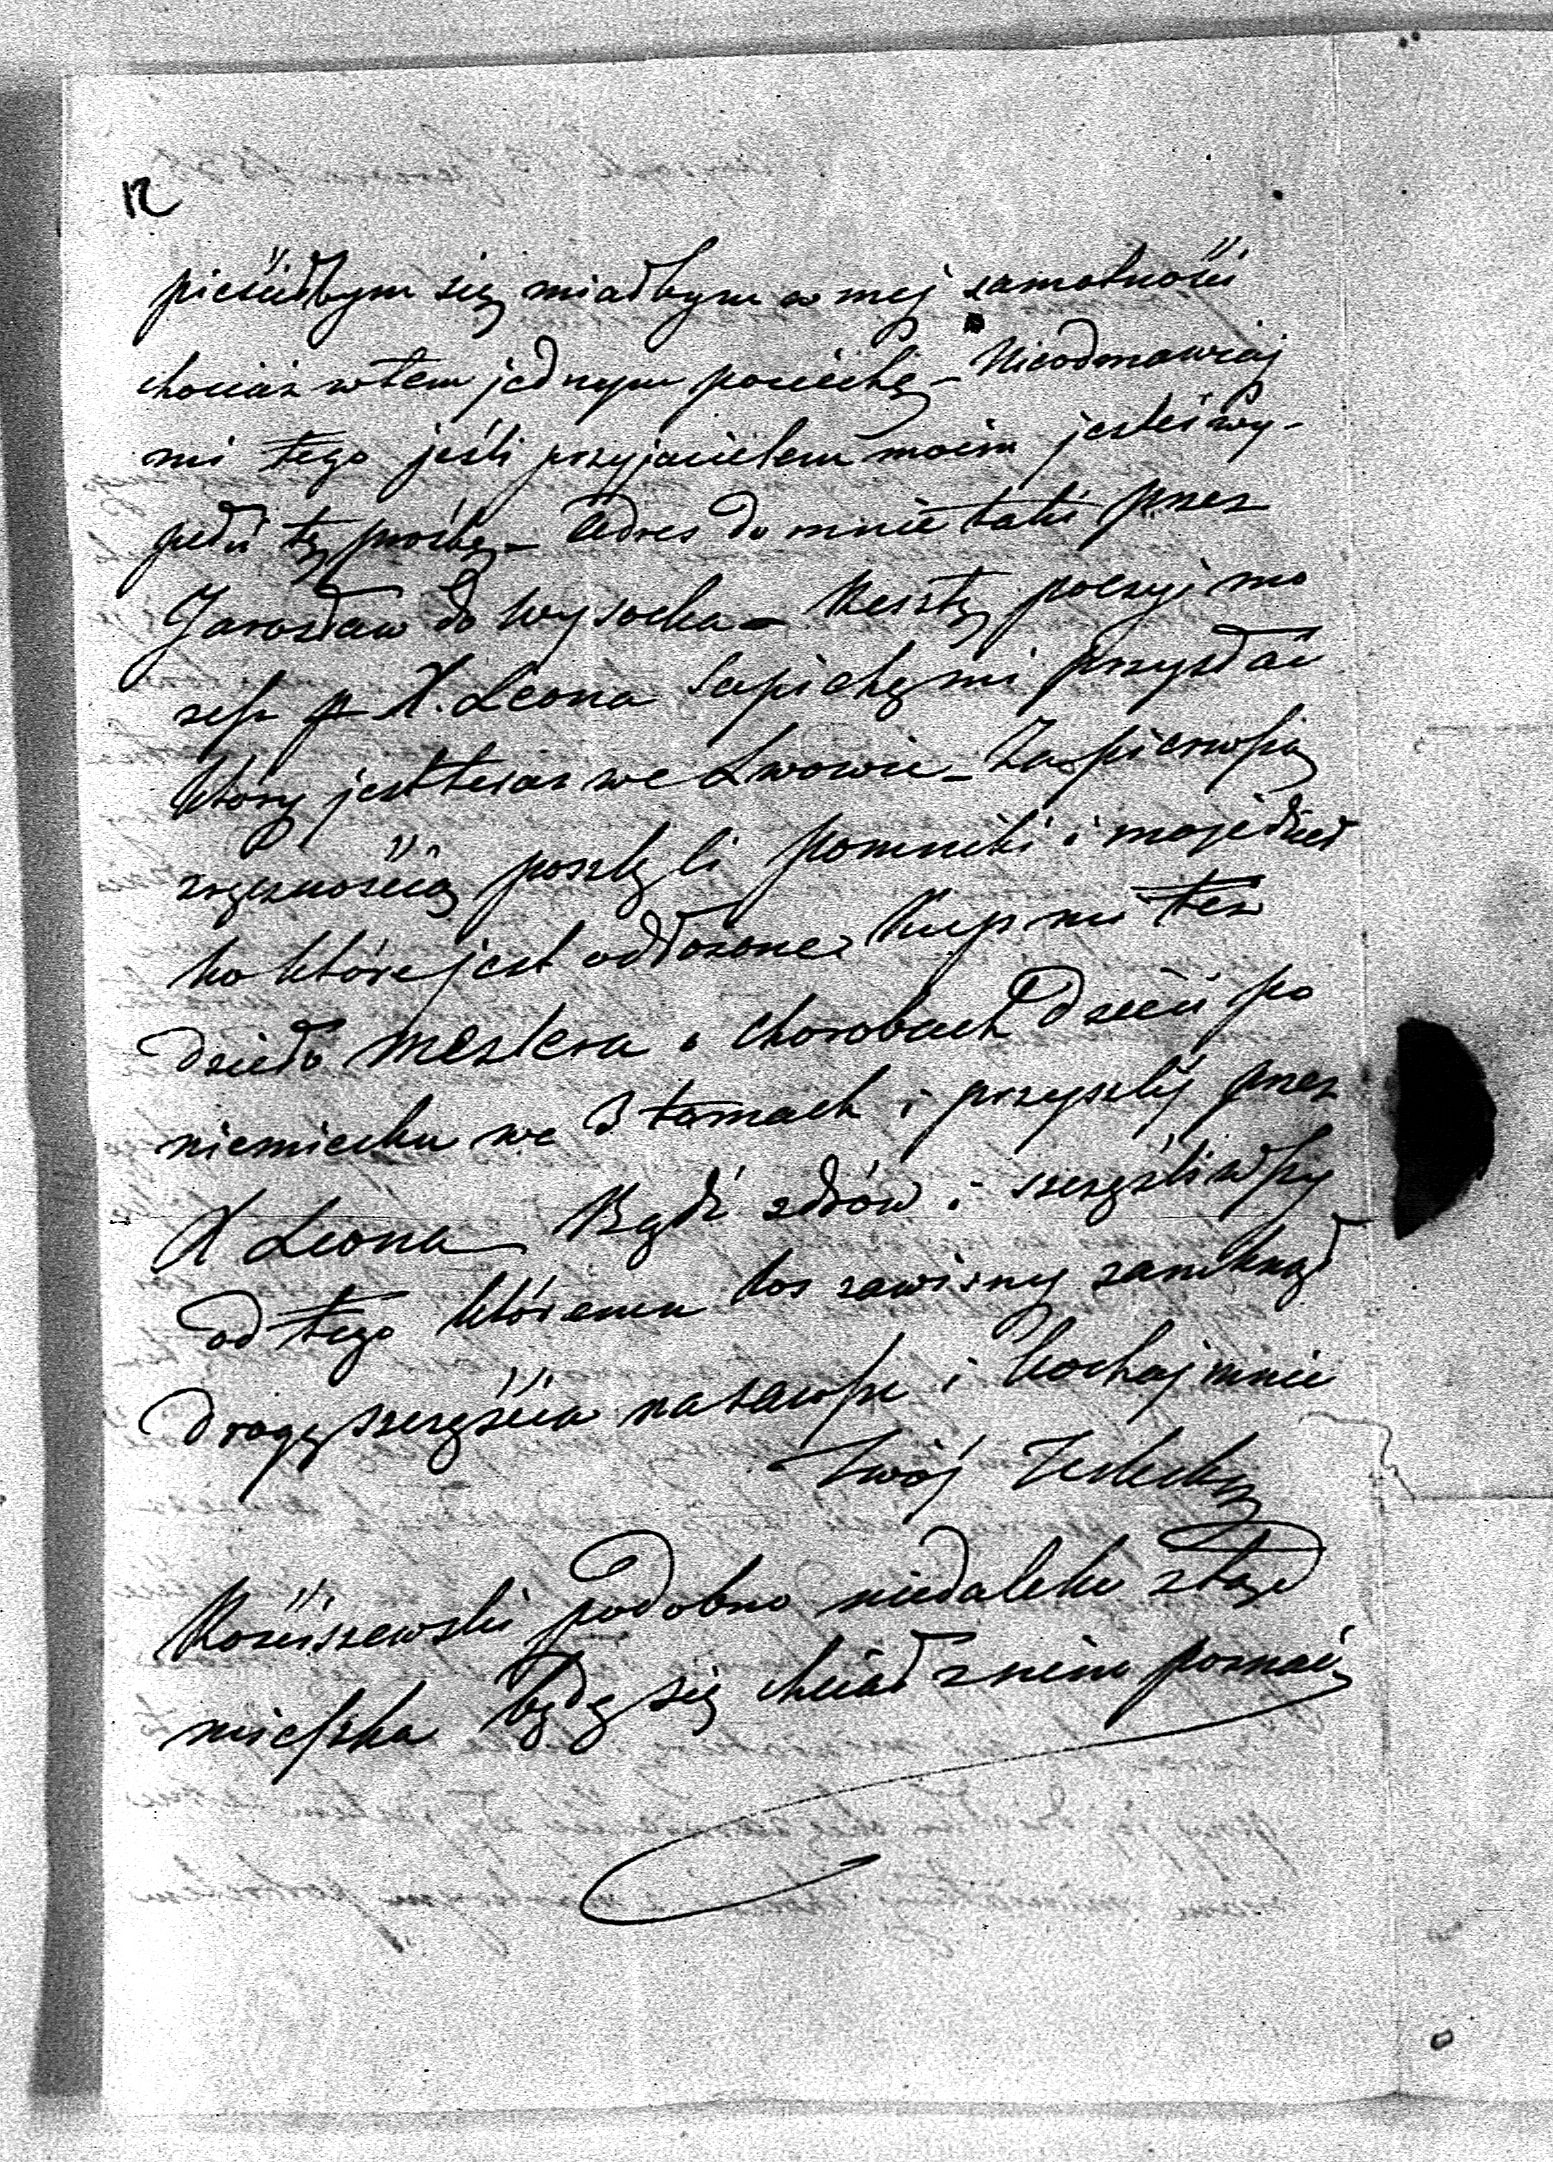 12
pieściłbym się miałbym w mej samotności
chociaż w tem jednym pociechę – Nieodmawiaj
mi tego jeśli przyjacielem moim jesteś wy-
pełń tę prośbę – Adres do mnie taki przez
Jarosław do Wysocka – Resztę poezyj mo
żesz p X. Leona Sapiehę mi przysłać
który jest teraz we Lwowie – Za pierwszą
zręcznością poszlę li pomniki i moje dzieł
ko które jest odłożone. Kup mi też
dzieło Meslera o chorobach dzieci po
niemiecku we 3 tomach i przyszlij przez
X Leona – Bądź zdrów i szczęśliwszy
od tego któremu los zawisny zamknął
drogę szczęścia na zawsze i kochaj mnie
Twój
Kościszewski podobno niedaleko ztąd
mieszka będę się chciał z nim poznać